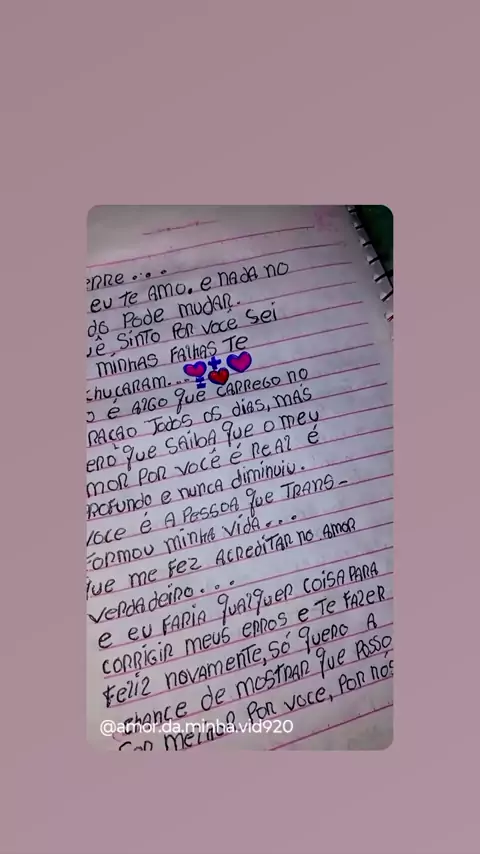 eu te AMO. e NADA NO
Pode MUDAR.
SiNTO POR VOCÊ Sei
MINHAS FAlHAS Te
chuCARAM...
e AlGO que CARREGO NO
TODOS OS DIAS, MAS
que SAiBA que O Meu
POR VOCÊ É ReAl É
e NUNCA diMiNUiU.
VOCE É A PESSOA que TRANS-
FORMOU MiNHA ViDA...
que Me FeZ ACREDiTAR NO AMOR
VERDADeiRO...
e eu FARiA quAlqueR COiSA PARA
CORRiGiR MeUS ERROS e Te FAZER
FeliZ NOVAMENTE, SÓ queRO A
CHANCE de MOSTRAR que POSSO
MelHOR POR VOCE, POR NÓS
@amor.da.minha.vid920